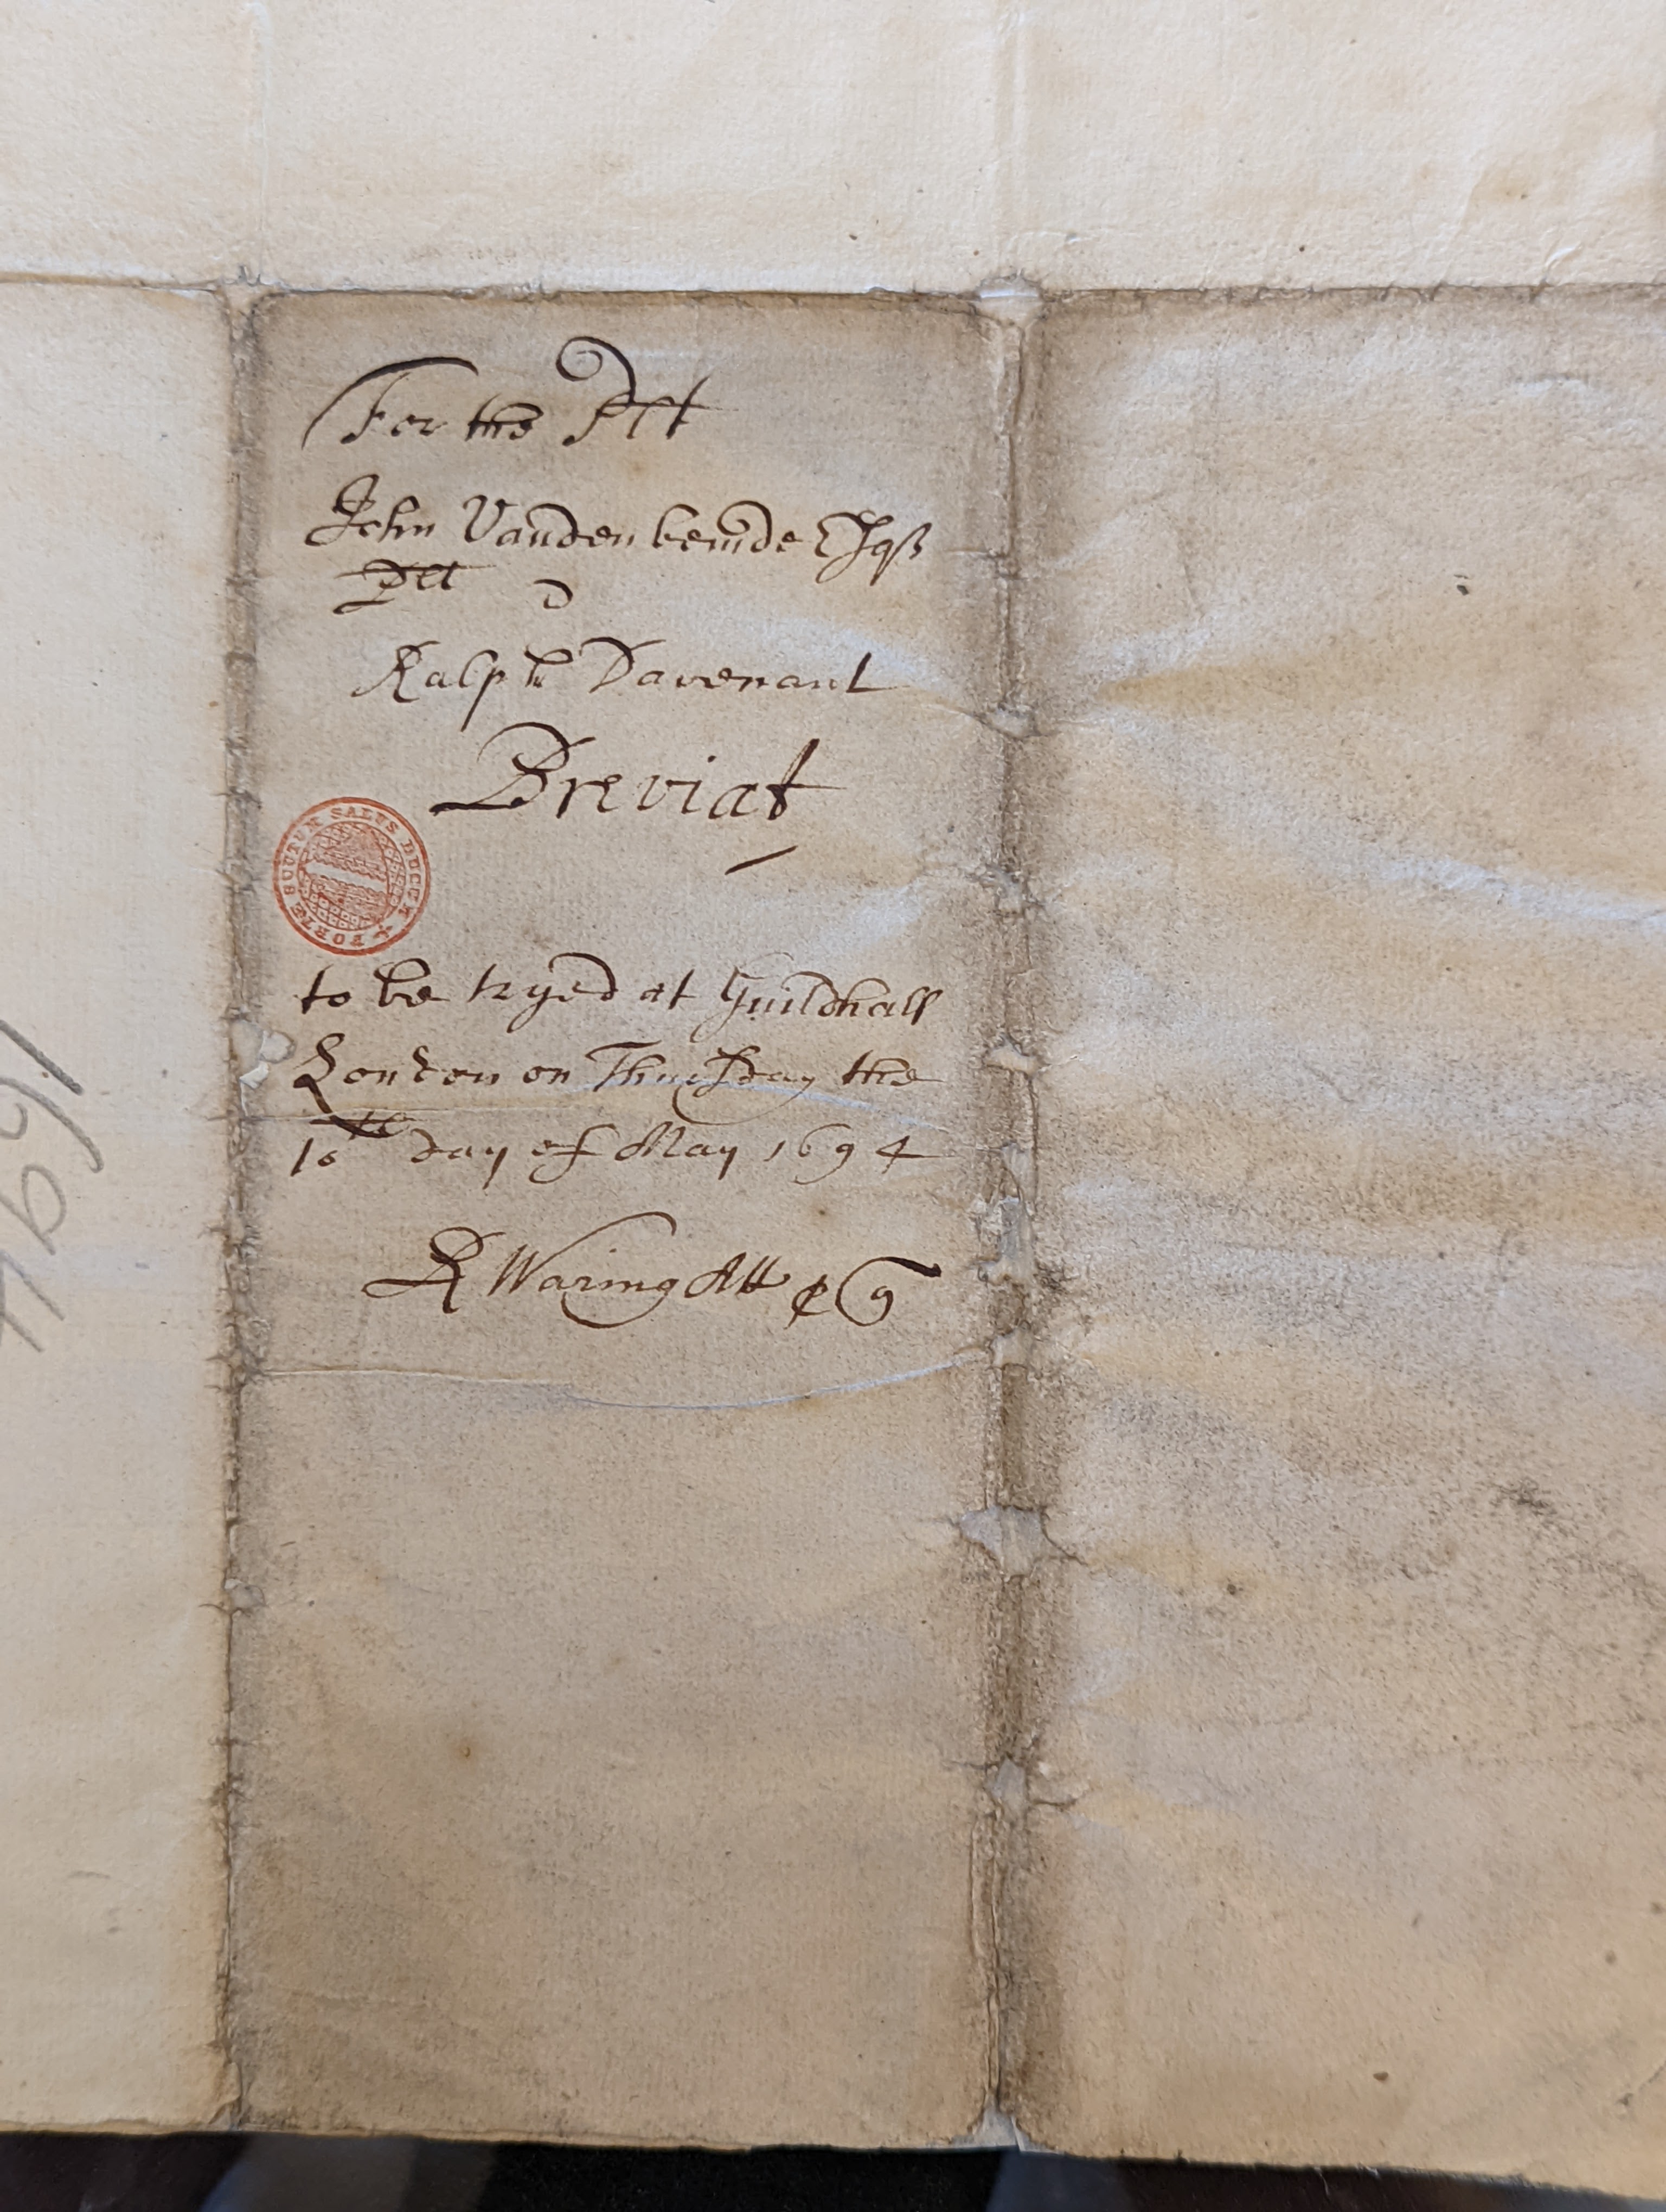 For the Plt
John Vandenbemde Esqr
Plt
Ralph Davenant
Breviat
to be tryed at Guildhall
London on Thursday the
10th day of May 1694
R Waring Att
A FORTE SUUTUM SALUS DUCCK
1694